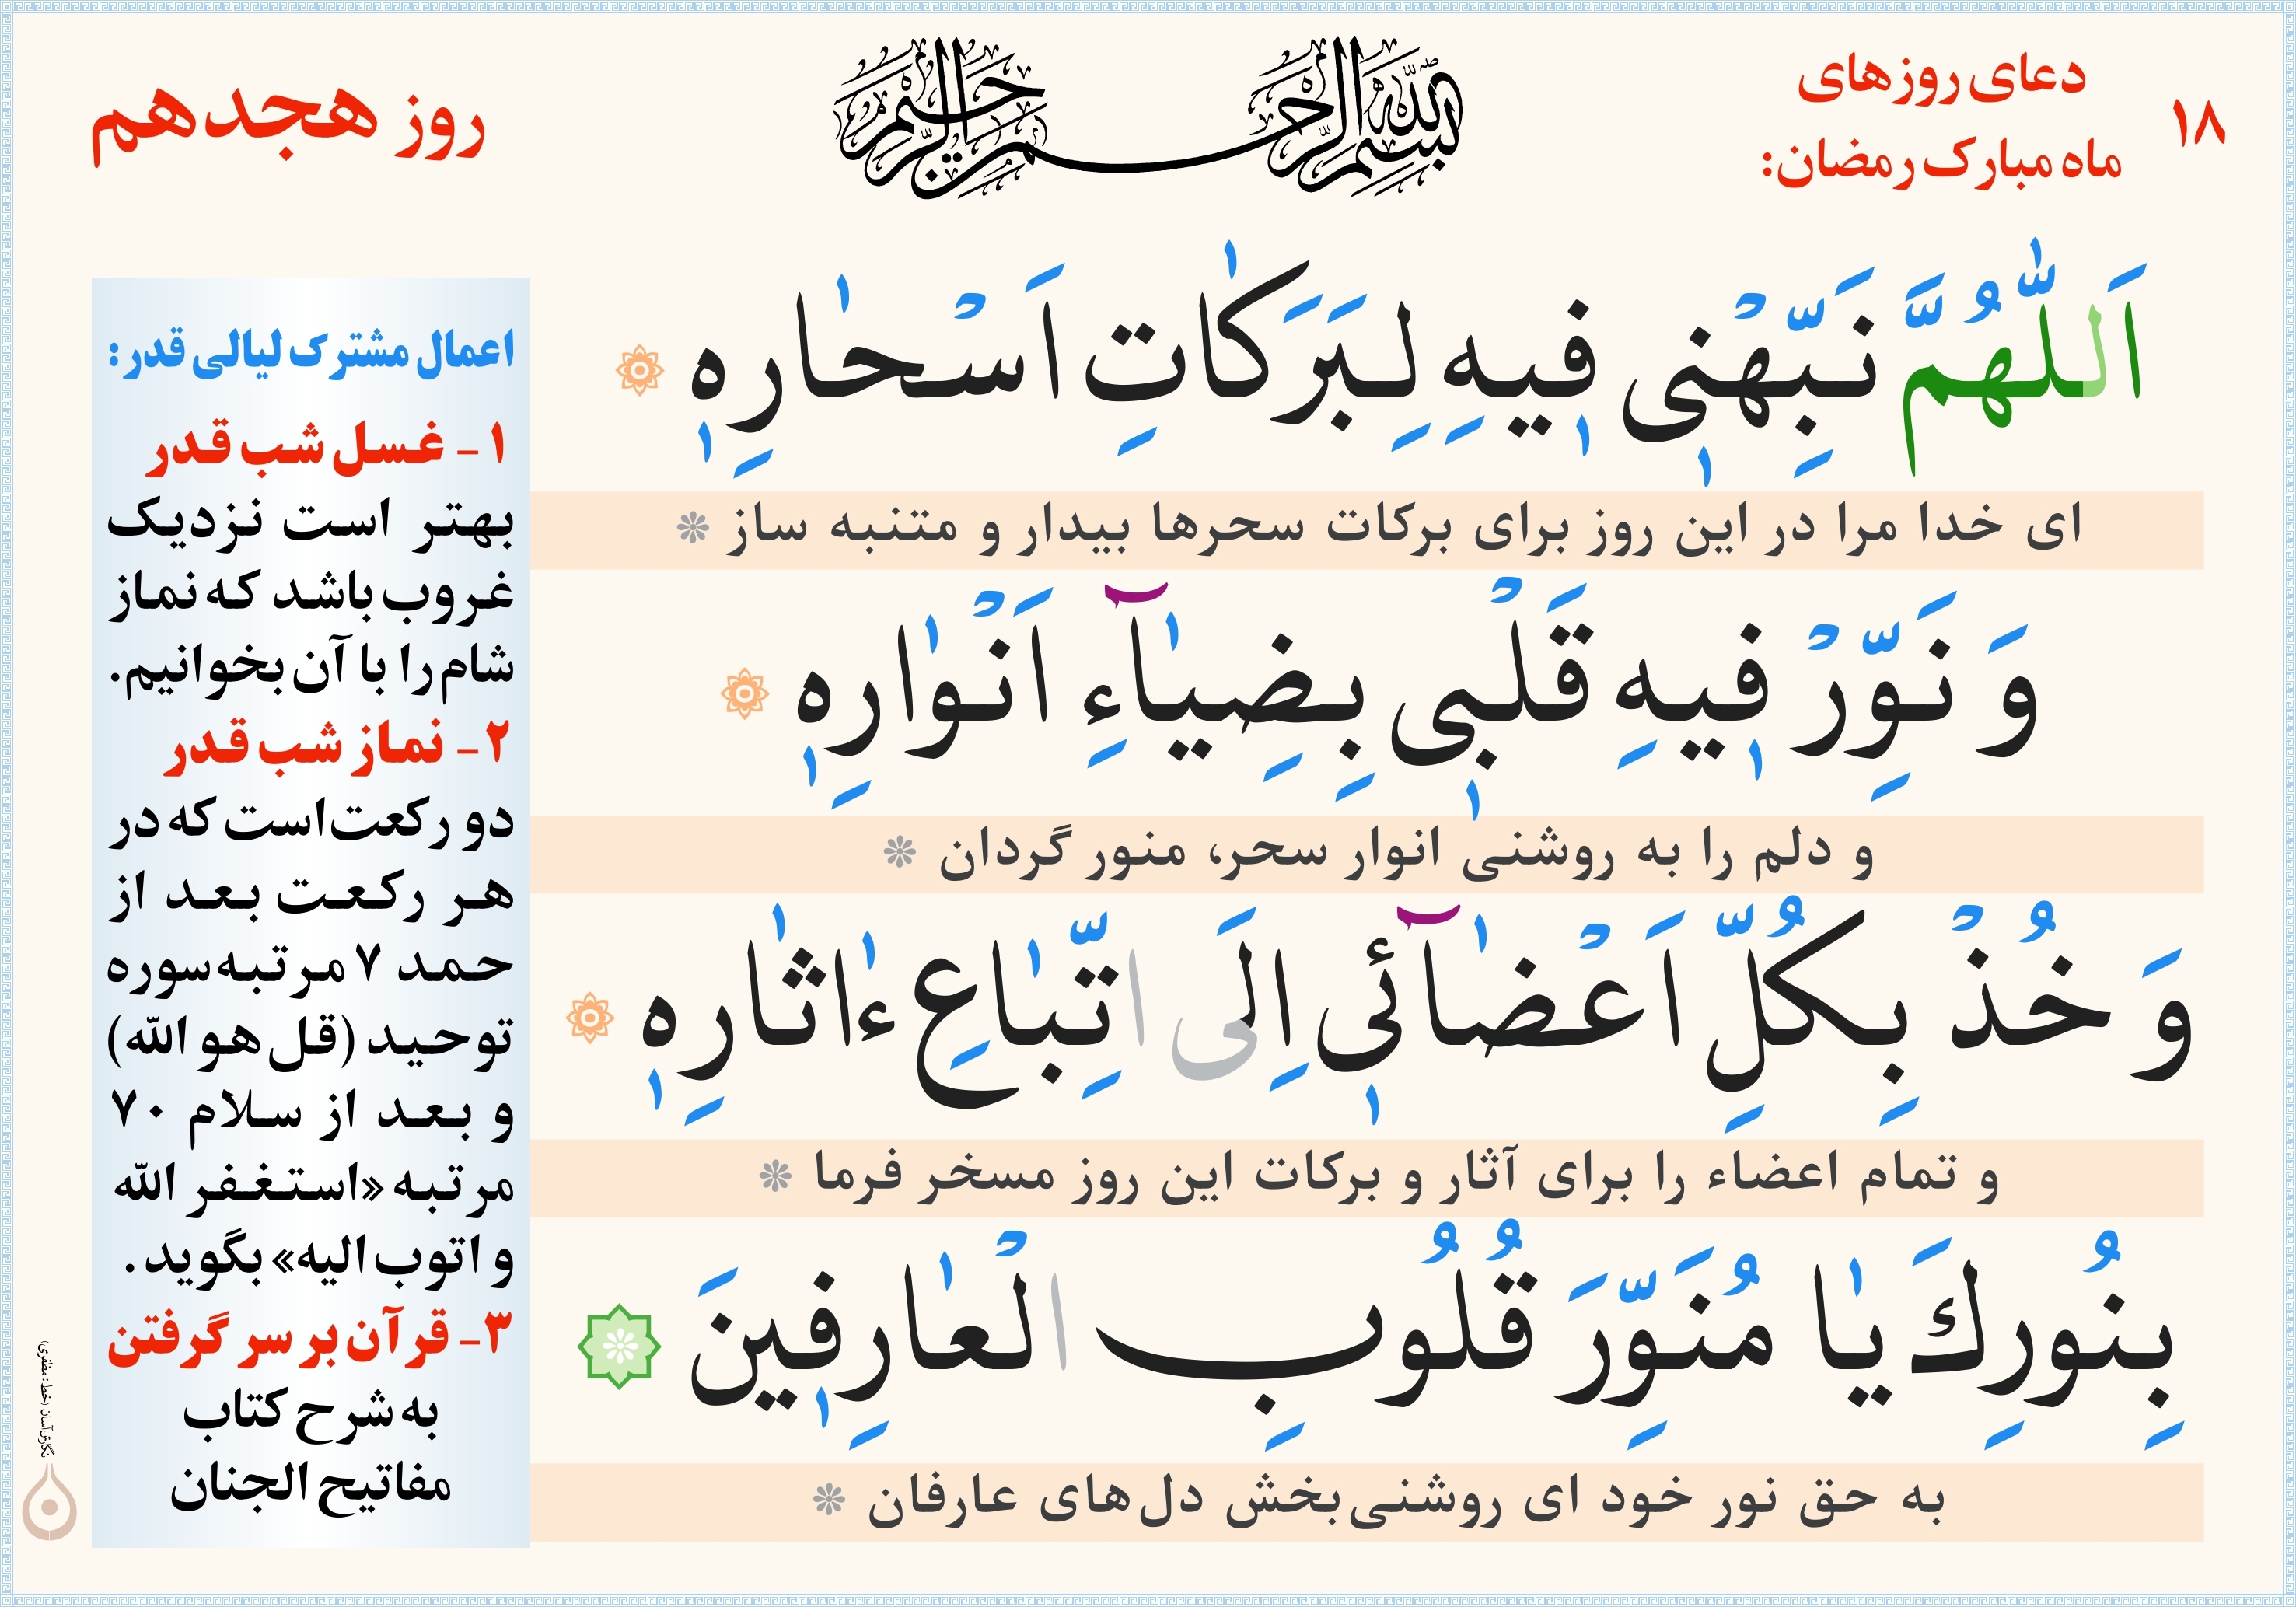 ۱۸
دعای روزهای
ماه مبارک رمضان:
بسم الله الرحمن الرحیم
روز هجدهم
اَللّٰهُمَّ نَبِّهْنٖی فٖیهِ لِبَرَکٰاتِ اَسْحٰارِهٖ
ای خدا مرا در این روز برای برکات سحرها بیدار و متنبه ساز
وَ نَوِّرْ فٖیهِ قَلْبٖی بِضِیٰآءِ اَنْوٰارِهٖ
و دلم را به روشنی انوار سحر، منور گردان
وَ خُذْ بِکُلِّ اَعْضٰآئٖی اِلَی اتِّبٰاعِ ءٰاثٰارِهٖ
و تمام اعضاء را برای آثار و برکات این روز مسخر فرما
بِنُورِكَ یٰا مُنَوِّرَ قُلُوبِ الْعٰارِفٖینَ
به حق نور خود ای روشنی‌بخش دل‌های عارفان
اعمال مشترک لیالی قدر:
۱- غسل شب قدر
بهتر است نزدیک
غروب باشد که نماز
شام را با آن بخوانیم.
۲- نماز شب قدر
دو رکعت است که در
هر رکعت بعد از
حمد ۷ مرتبه سوره
توحید (قل هو الله)
و بعد از سلام ۷۰
مرتبه «استغفر الله
و اتوب الیه» بگوید.
۳- قرآن بر سر گرفتن
به شرح کتاب
مفاتیح الجنان
نگارش آسان (خط: مظفری)